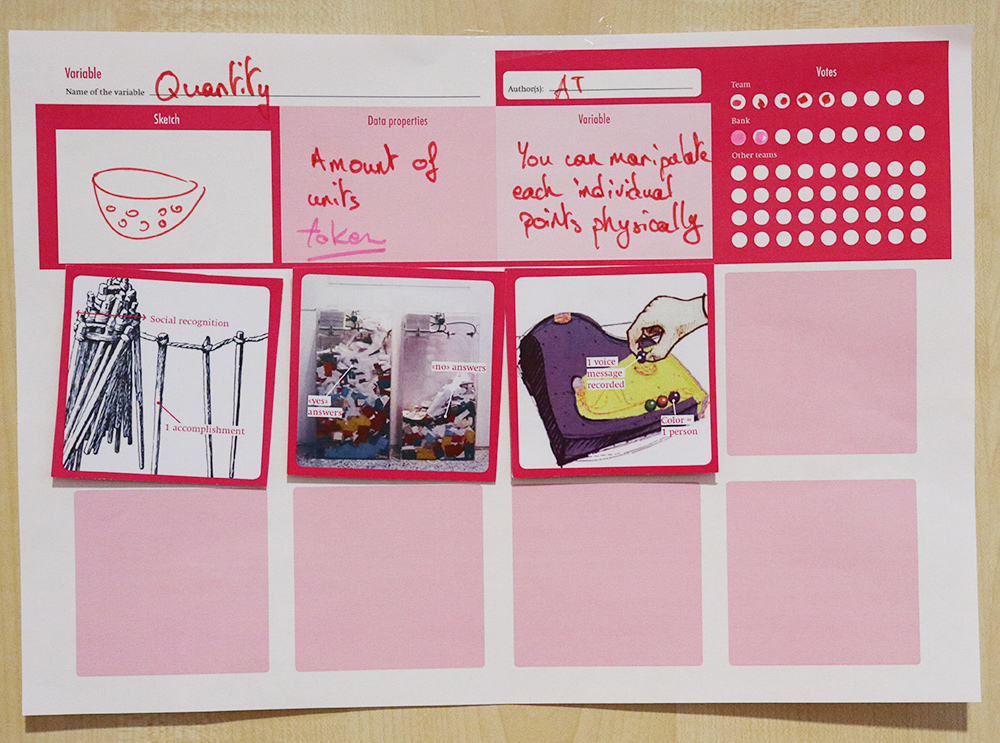 Variable
Name of the variable Quantity
Author(s): AT
Votes
Team
Bank
Other teams
Sketch
Data properties
Amount of
units
token
Variable
You can manipulate
each individual
points physically
Social recognition
1 accomplishment
«yes»
answers
«no» answers
1 voice
message
recorded
Color =
1 person